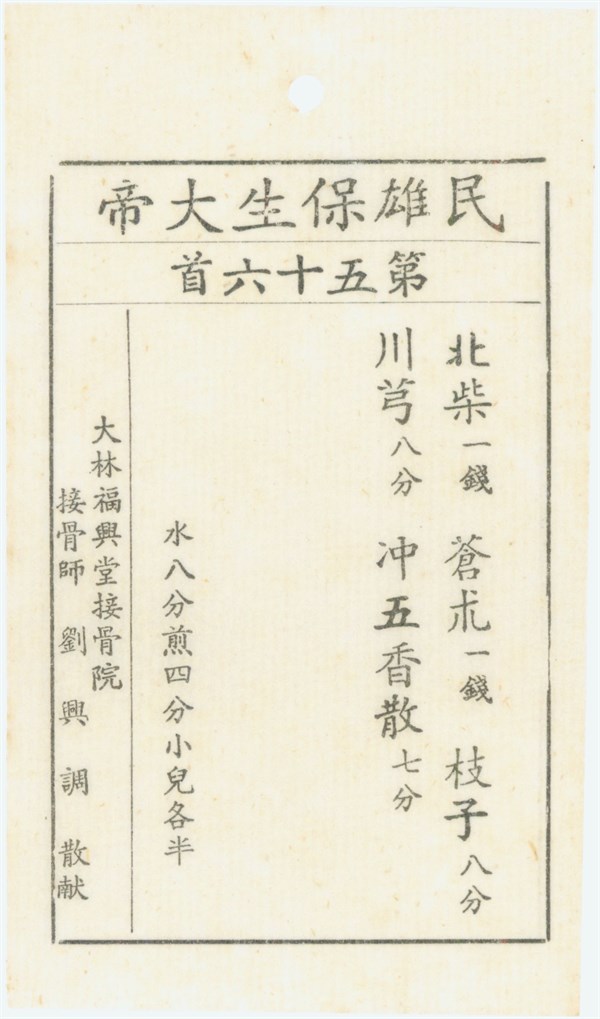 民雄保生大帝
第五十六首
北柴一錢 蒼朮一錢 枝子八分
川芎八分 冲五香散七分
水八分煎四分小兒各半
大林福興堂接骨院
接骨師 劉興調 敬献